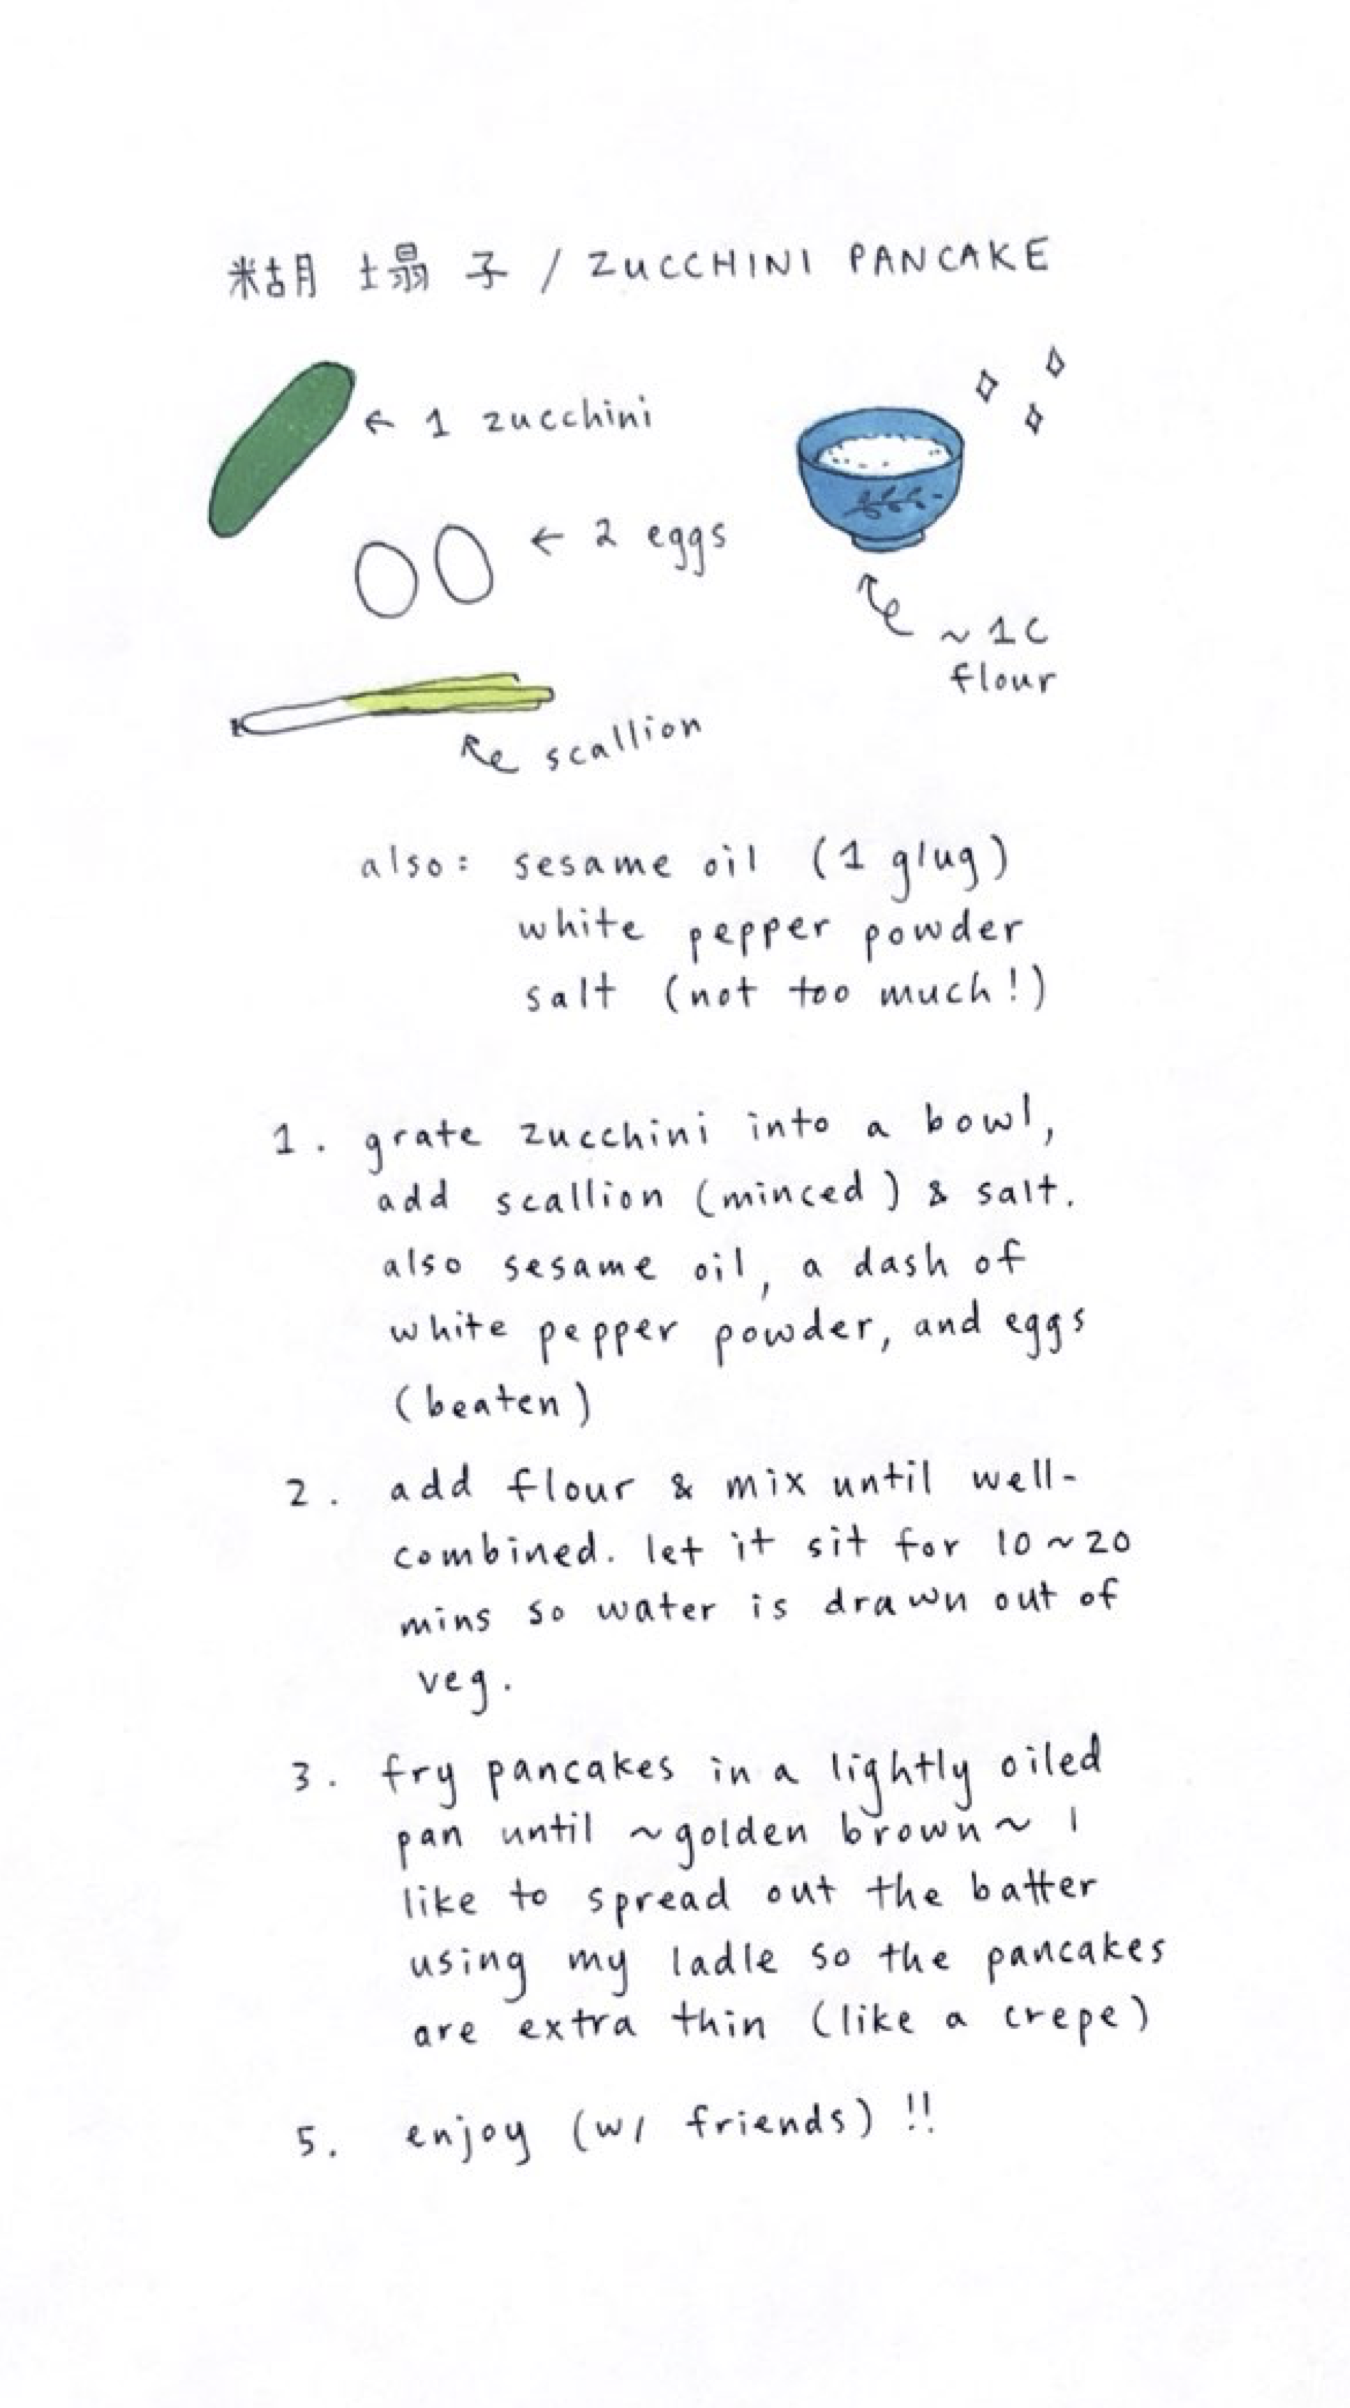 糊塌子 / ZUCCHINI PANCAKE
← 1 zucchini
← 2 eggs
~ 1C
flour
scallion
also: sesame oil (1 glug)
white pepper powder
salt (not too much!)
1. grate zucchini into a bowl,
add scallion (minced) & salt.
also sesame oil, a dash of
white pepper powder, and eggs
(beaten)
2. add flour & mix until well-
combined. let it sit for 10~20
mins so water is drawn out of
veg.
3. fry pancakes in a lightly oiled
pan until ~golden brown~ I
like to spread out the batter
using my ladle so the pancakes
are extra thin (like a crepe)
5. enjoy (w/ friends) !!